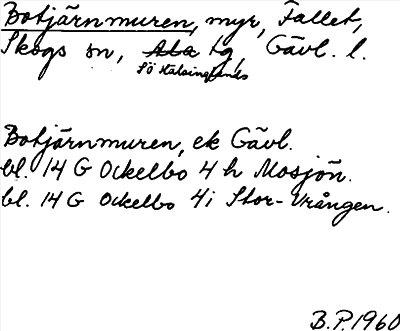 Botjärnmuren, myr, Fallet,
Skogs sn, Ala tg, Gävl. l.
Sö Hälsinglands
Botjärnmuren, ek Gävl.
bl. 14 G Ockelbo 4 h Mosjön.
bl. 14 G Ockelbo 4i Stor-Vrången.
B.P. 1960